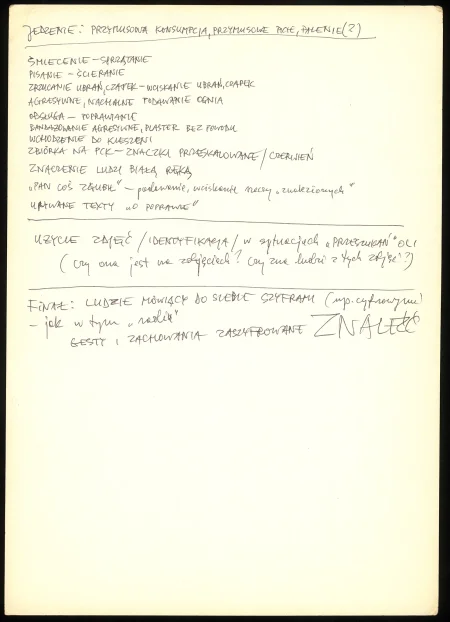 JEDZENIE: PRZYMUSOWA KONSUMPCJA, PRZYMUSOWE PICIE, PALENIE (?)
ŚMIECENIE – SPRZĄTANIE
PISANIE – ŚCIERANIE
ZRZUCANIE UBRAŃ, CZAPEK – WCISKANIE UBRAŃ, CZAPEK
AGRESYWNE, NACHALNE PODAWANIE OGNIA
OBSŁUGA – POPRAWIANIE
BANDAŻOWANIE AGRESYWNE, PLASTER BEZ POWODU
WCHODZENIE DO KIESZENI
ZBIÓRKA NA PCK – ZNACZKI PRZESKALOWANE / CZERWIEŃ
ZNACZENIE LUDZI BIAŁĄ RĘKĄ
„PAN COŚ ZGUBIŁ" – podawanie, wciskanie rzeczy „znalezionych"
URYWANE TEXTY „O POPRAWCE"
UŻYCIE ZDJĘĆ / IDENTYFIKACJA / w sytuacjach „PRZESZUKAŃ" OLI
(czy ona jest na zdjęciach? czy zna ludzi z tych zdjęć?)
FINAŁ: LUDZIE MÓWIĄCY DO SIEBIE SZYFRAMI (np. cyfrowymi)
– jak w tym „radiu"
GESTY I ZACHOWANIA ZASZYFROWANE ZNALEŹĆ